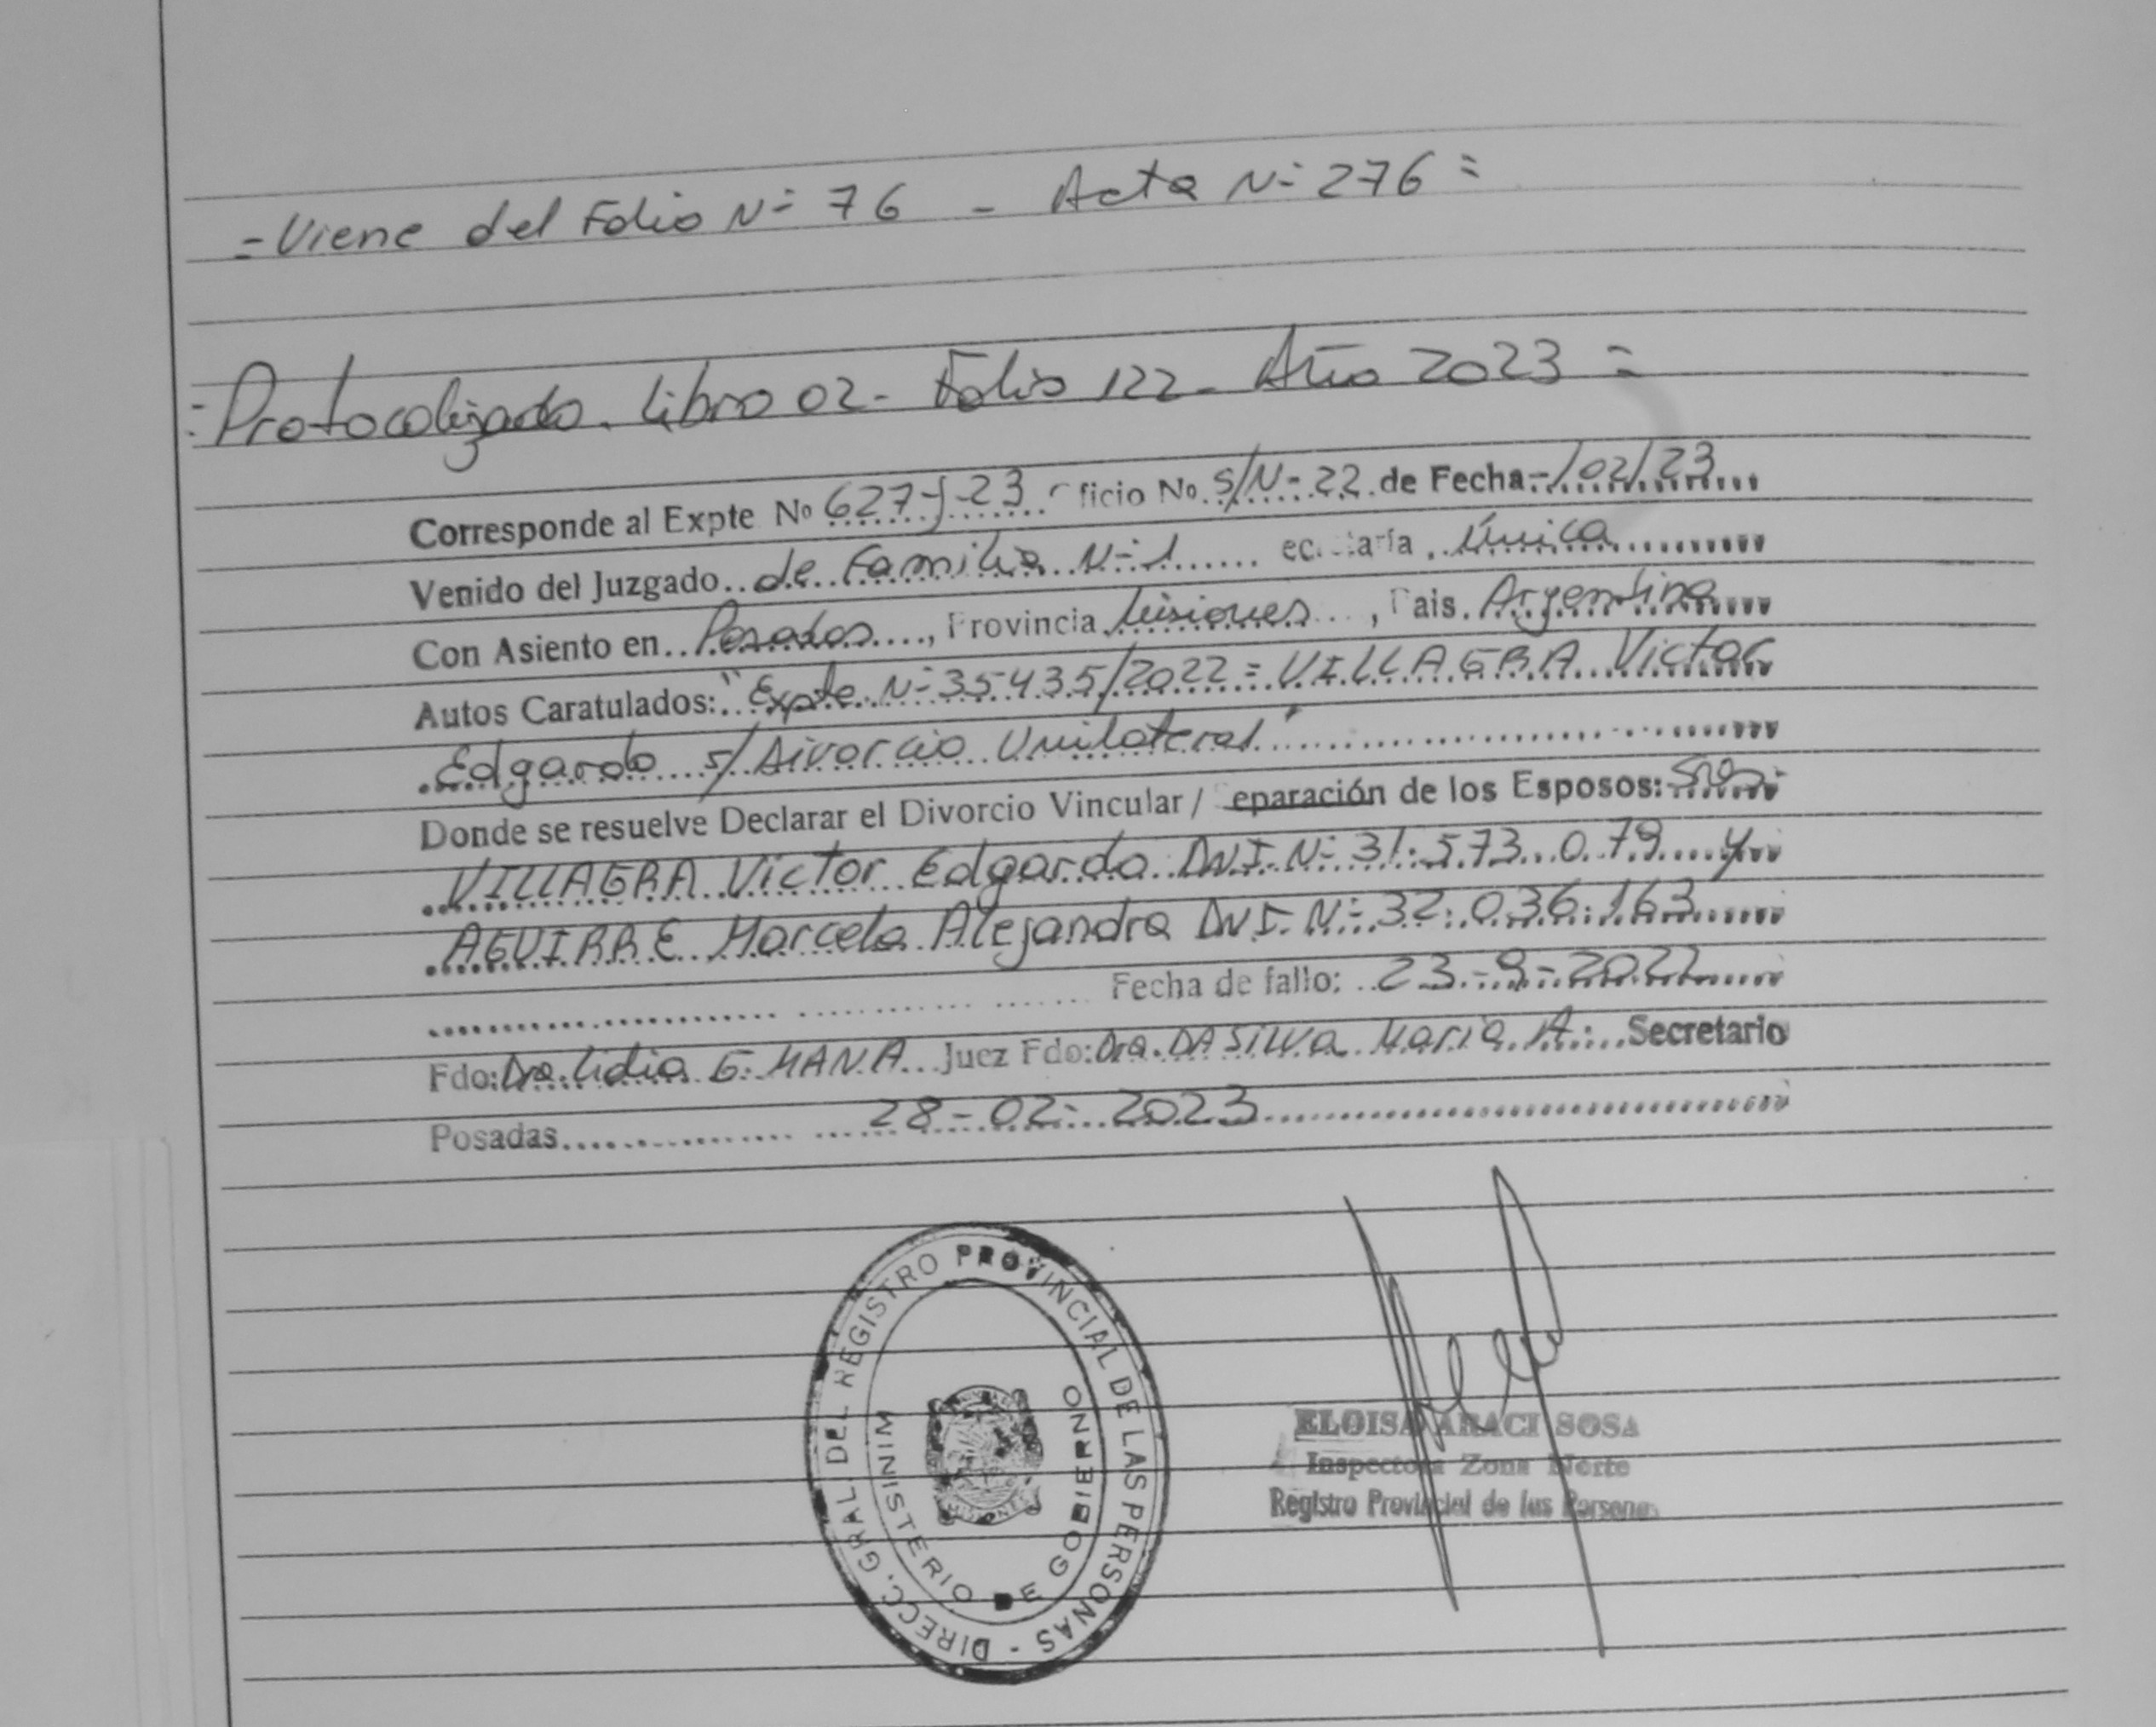 =Viene del Folio Nº 76 - Acta Nº 276=
=Protocolizado. Libro 02- Folio 122- Año 2023=
Corresponde al Expte Nº 627-J-23 ficio No. S/N-22 de Fecha -/02/23
Venido del Juzgado de Familia Nº 1 ecretaría Única
Con Asiento en Posadas, Provincia Misiones, Pais. Argentina
Autos Caratulados: "Expte Nº 35435/2022= VILLAGRA Victor
Edgardo s/ Divorcio Unilateral"
Donde se resuelve Declarar el Divorcio Vincular / eparación de los Esposos:
VILLAGRA Victor Edgardo DNI Nº 31.573.079 y
AGUIRRE Marcela Alejandra DNI Nº 32.036.163
Fecha de fallo: 23-9-2022
Fdo: Dra. Lidia G. MANA Juez Fdo: Dra. DA SILVA Maria A. Secretario
Posadas 28-02-2023
DIRECC. GRAL. DEL REGISTRO PROVINCIAL DE LAS PERSONAS -
MINISTERIO DE GOBIERNO
ELOISA ARACI SOSA
Inspectora Zona Norte
Registro Provincial de las Personas